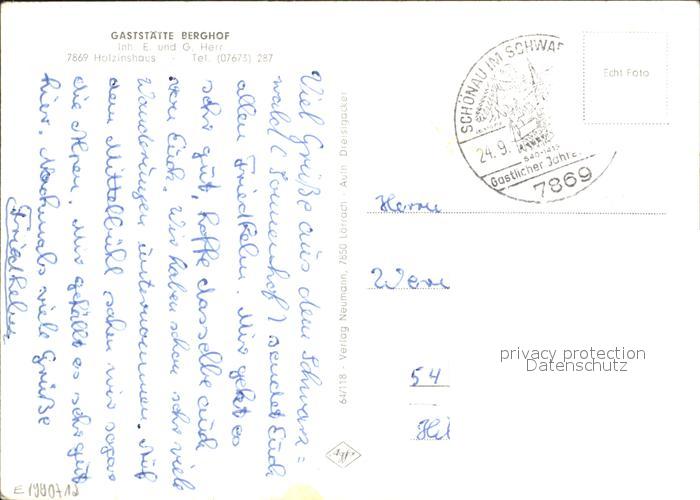 GASTSTÄTTE BERGHOF
Inh. E. und G. Herr
7869 Holzinshaus - Tel. (07673) 287
Viel Grüße aus dem Schwarz=
wald (Sonnenhof) sendet Euch
allen Friedhelm. Mir geht es
sehr gut, hoffe dasselbe auch
von Euch. Wir haben schon sehr viele
Wanderungen unternommen. Auf
dem Mittelbühl sahen wir sogar
die Alpen. Mir gefällt es sehr gut
hier. Nochmals viele Grüße
Friedhelm
64/118 - Verlag Neumann, 7850 Lörrach - Aufn. Dreisigacker
SCHÖNAU IM SCHWAR
24.9.
Gastlicher
7869
Echt Foto
Herrn
Wern
54
privacy protection
Datenschutz
E1990712